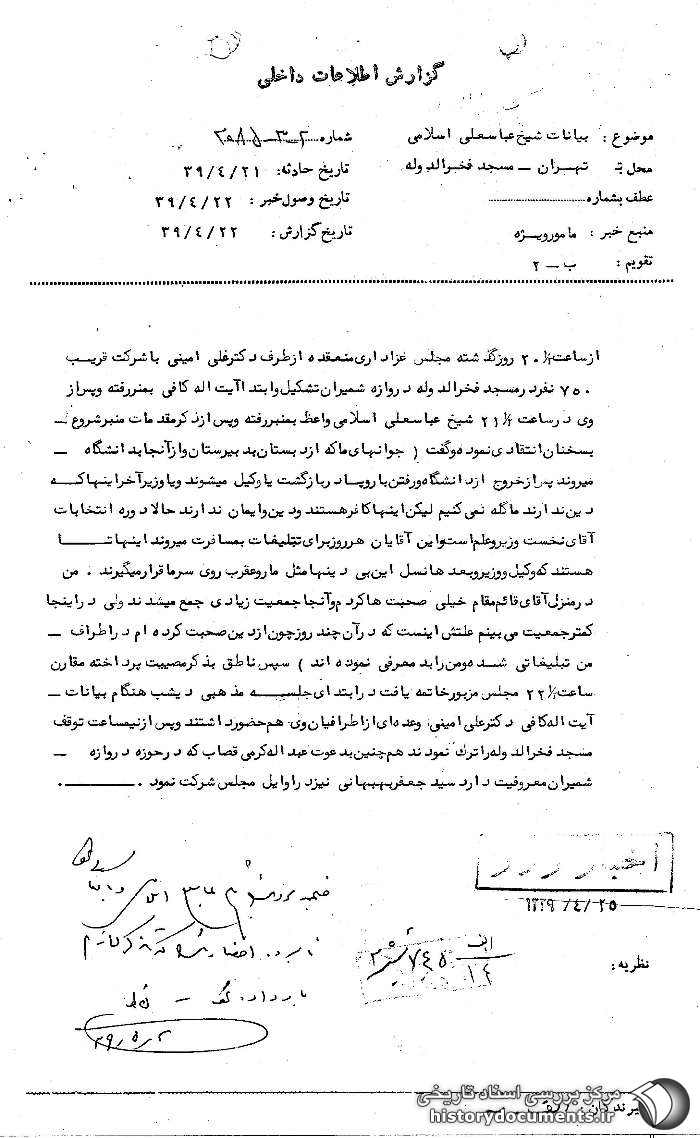 گزارش اطلاعات داخلی
موضوع : بیانات شیخ عباسعلی اسلامی
شماره
محل : تهران – مسجد فخرالدوله
تاریخ حادثه: ۳۹/۴/۲۱
عطف بشماره
تاریخ وصول خبر : ۳۹/۴/۲۲
منبع خبر : مامورویژه
تاریخ گزارش : ۳۹/۴/۲۲
تقویم : ب – ۲
ازساعت ۲۰/۵ روزگذشته مجلس عزاداری منعقده ازطرف دکترعلی امینی باشرکت قریب
۷۵۰ نفردرمسجد فخرالدوله دروازه شمیران تشکیل وابتدا آیت اله کافی بمنبررفته وپس از
وی درساعت ۲۱ شیخ عباسعلی اسلامی واعظ بمنبررفته وپس ازذکرمقدمات منبرشروع –
بسخنان انتقادی نموده وگفت ( جوانهای ماکه ازدبستان بدبیرستان وازآنجا بدانشگاه –
میروند پس ازخروج ازدانشگاه ورفتن باروپا دربازگشت یاوکیل میشوند ویاوزیرآخراینها کــه
دین ندارند ماگله نمی کنیم لیکن اینها کافرهستند ودین وایمان ندارند حالا دوره انتخابات
آقای نخست وزیروعلم است واین آقایان هرروزبرای تبلیغات بمسافرت میروند اینها تــا
هستند که وکیل ووزیروبعدها نسل این بی دینها مثل ماروعقرب روی سرما قرارمیگیرند . من
درمنزل آقای قائم مقام خیلی صحبت ها کردم وآنجا جمعیت زیادی جمع میشدند ولی دراینجا
کمترجمعیت می بینم علتش اینست که درآن چند روزچون ازدین صحبت کرده ام دراطراف –
من تبلیغاتی شده ومن رابد معرفی نموده اند ) سپس ناطق بذکرمصیبت پرداخته مقارن
ساعت ۲۲ مجلس مزبورخاتمه یافت درابتدای جلســه مذهبی دیشب هنگام بیانات –
آیت اله کافی دکترعلی امینی وعده ای ازاطرافیان وی هم حضورداشتند وپس ازنیمساعت توقف
مسجد فخرالدوله راترک نمودند همچنین بدعوت عبداله کرمی قصاب که درحوزه دروازه –
شمیران معروفیت دارد سید جعفربهبهانی نیزدراوایل مجلس شرکت نمود .
اخبار روز
۱۳۳۹/۴/۲۵
نظریه :
الف
۱۴
۷۴۵
۳۹/۵/۲
مرکز بررسی اسناد تاریخی
historydocuments.ir